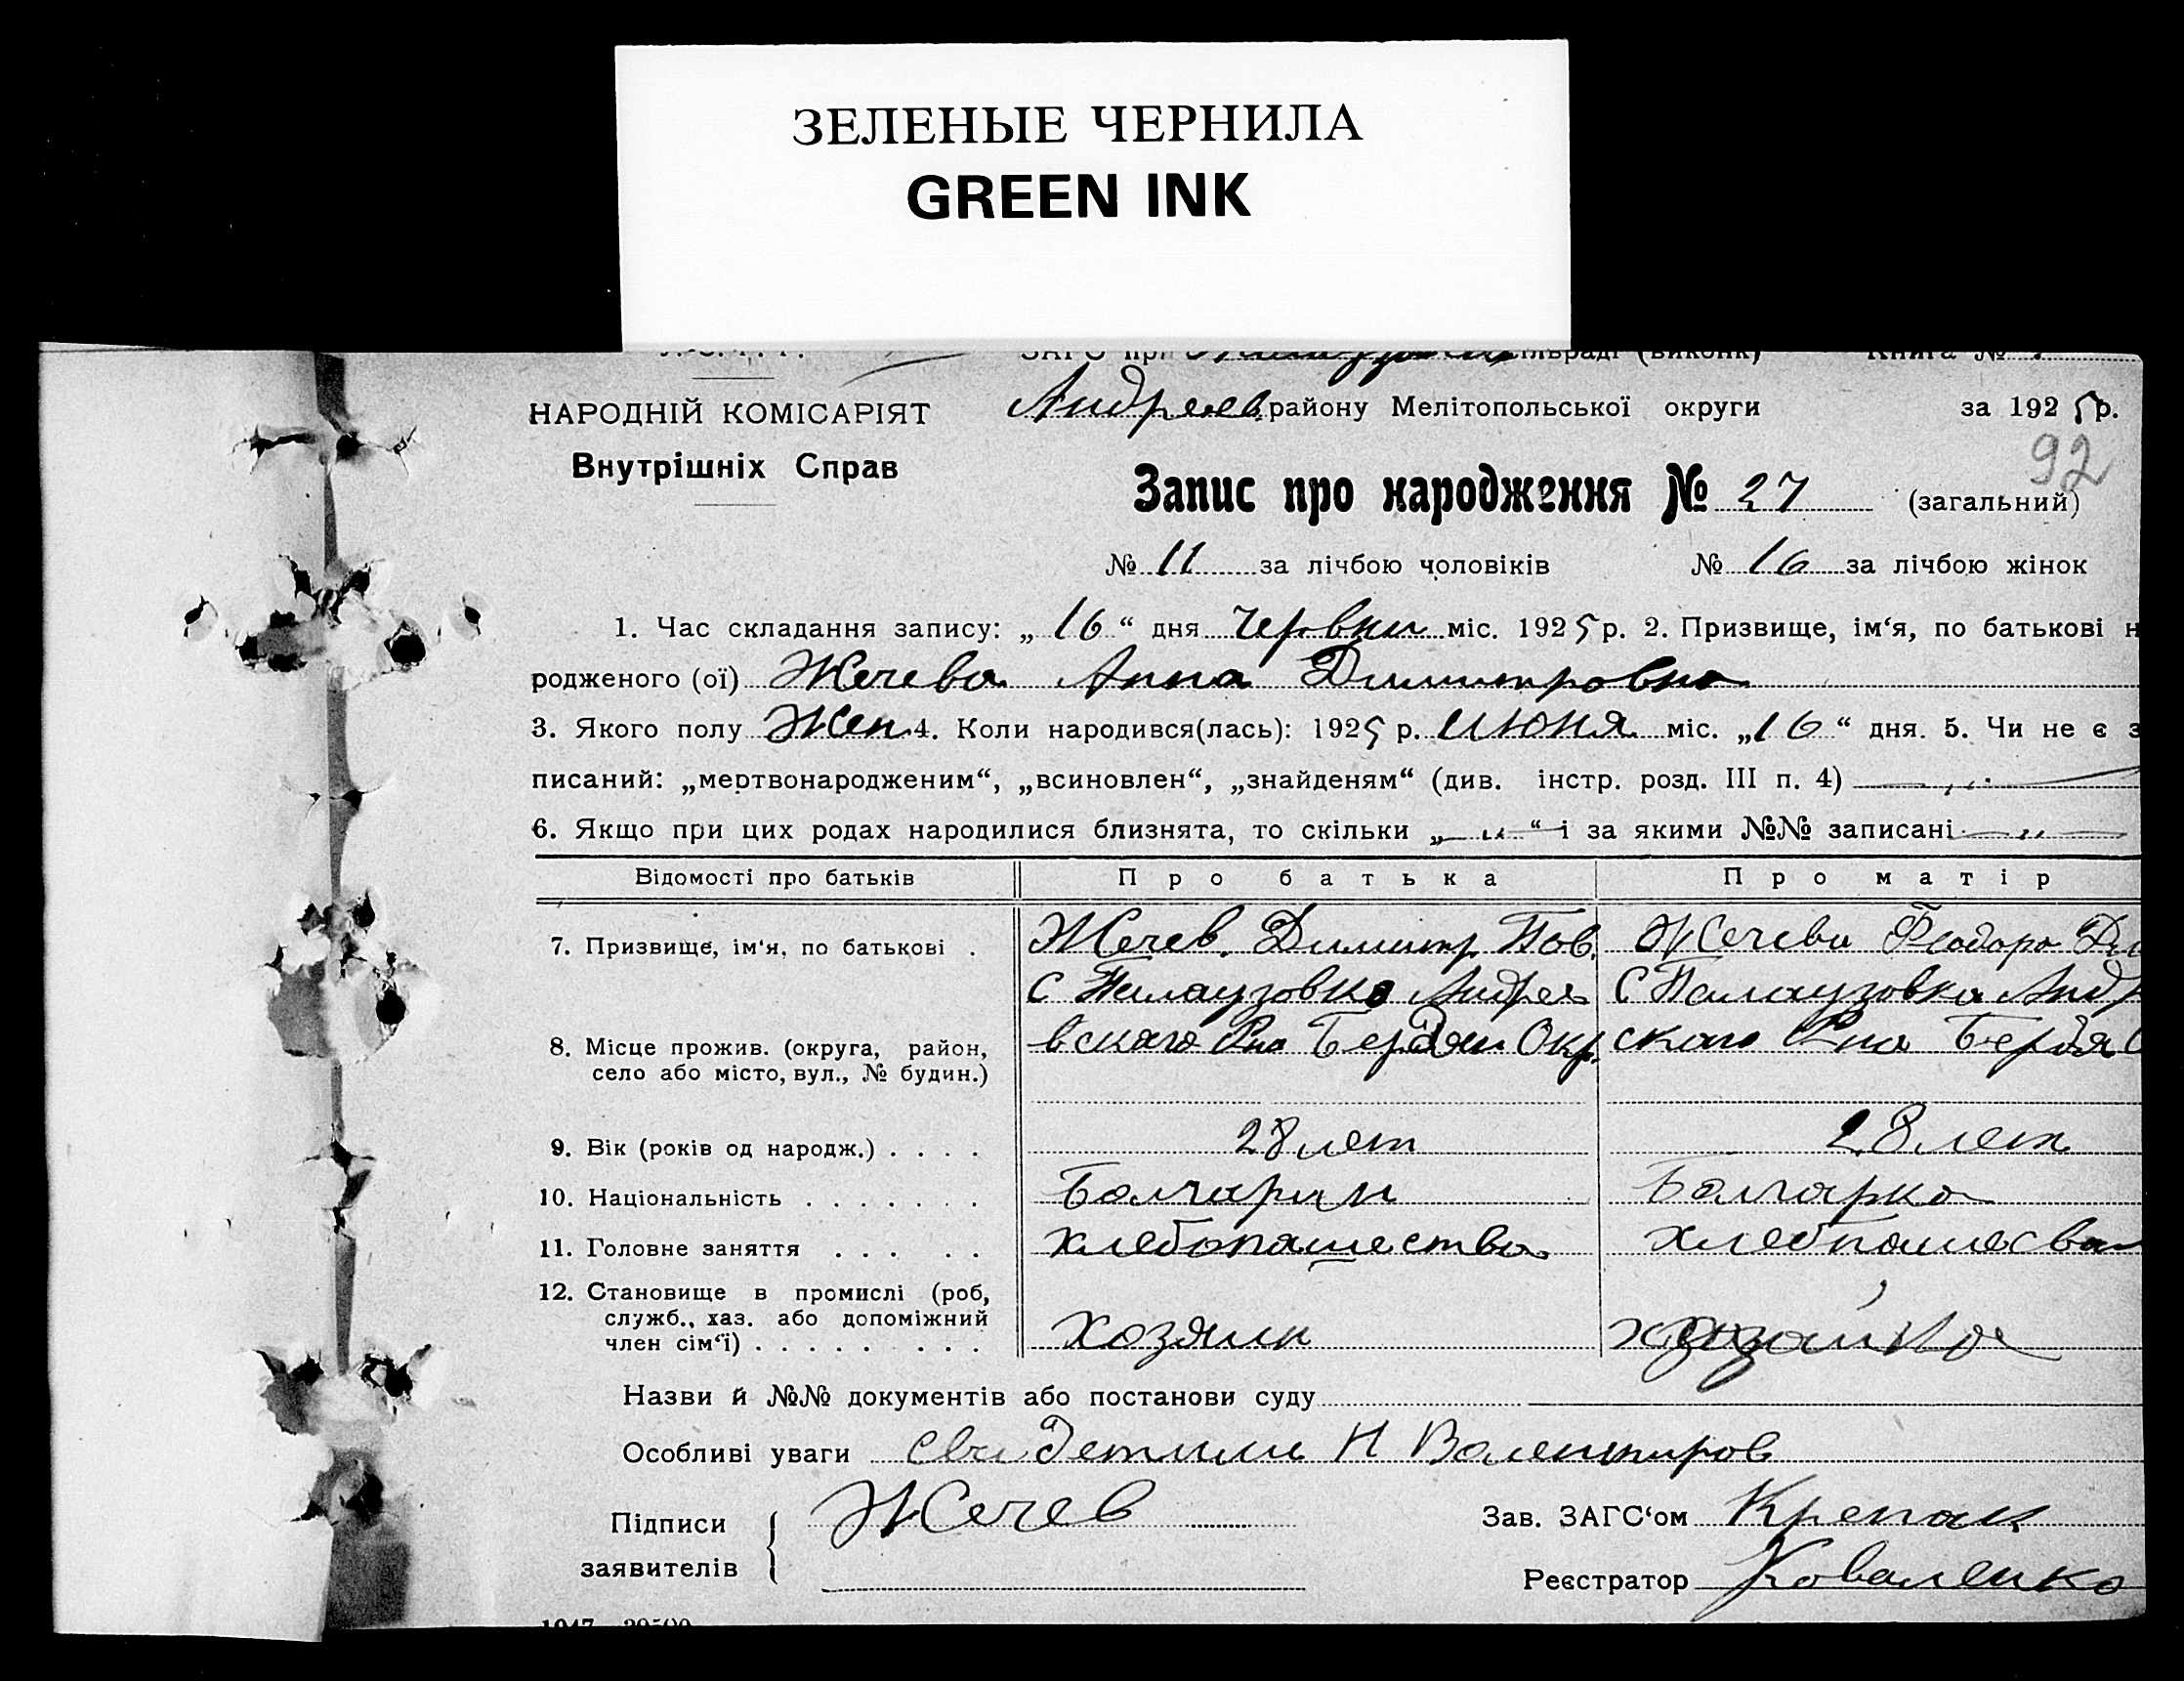 ЗЕЛЕНЫЕ ЧЕРНИЛА
GREEN INK
ЗАГС при сільраді (виконк) Книга №
НАРОДНІЙ КОМІСАРІЯТ Андреев. району Мелітопольської округи за 1925 р.
92
Внутрішніх Справ
Запис про народження № 27 (загальний)
№ 11 за лічбою чоловіків № 16 за лічбою жінок
1. Час складання запису: „ 16 “ дня Червня міс. 1925 р. 2. Призвище, ім‘я, по батькові н
родженого (ої) Жечева Анна Димитровна
3. Якого полу Жен 4. Коли народився(лась): 1925 р. Июня міс. „16“ дня. 5. Чи не є з
писаний: „мертвонародженим“, „всиновлен“, „знайденям“ (див. інстр. розд. III п. 4) — „ —
6. Якщо при цих родах народилися близнята, то скільки „— „ “ і за якими №№ записані — „ —
Відомості про батьків Про батька Про матір
7. Призвище, ім‘я, по батькові . Жечев. Димитр Пав. Жечева Феодора Ди
С Палаузовка Андрея С Палаузовка Андр
8. Місце прожив. (округа, район, вскаго Рна Бердян Окр. скаго Рна Бердя О
село або місто, вул., № будин.)
9. Вік (років од народж.) . . . . 28 лет 28 лет
10. Національність . . . . . . . Болгарин Болгарка
11. Головне заняття . . . . . хлебопашество хлебпашесва
12. Становище в промислі (роб,
служб., хаз. або допоміжний
член сім‘ї) . . . . . . . . Хозяин хазайка
Назви й №№ документів або постанови суду
Особливі уваги свидетили Н Валентиров
Підписи Жечев Зав. ЗАГС‘ом Крепак
заявителів Реєстратор Коваленко